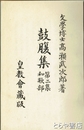 文學博士高瀬武次郎著
鼓腹集
第二集
和歌部
皇教會藏版